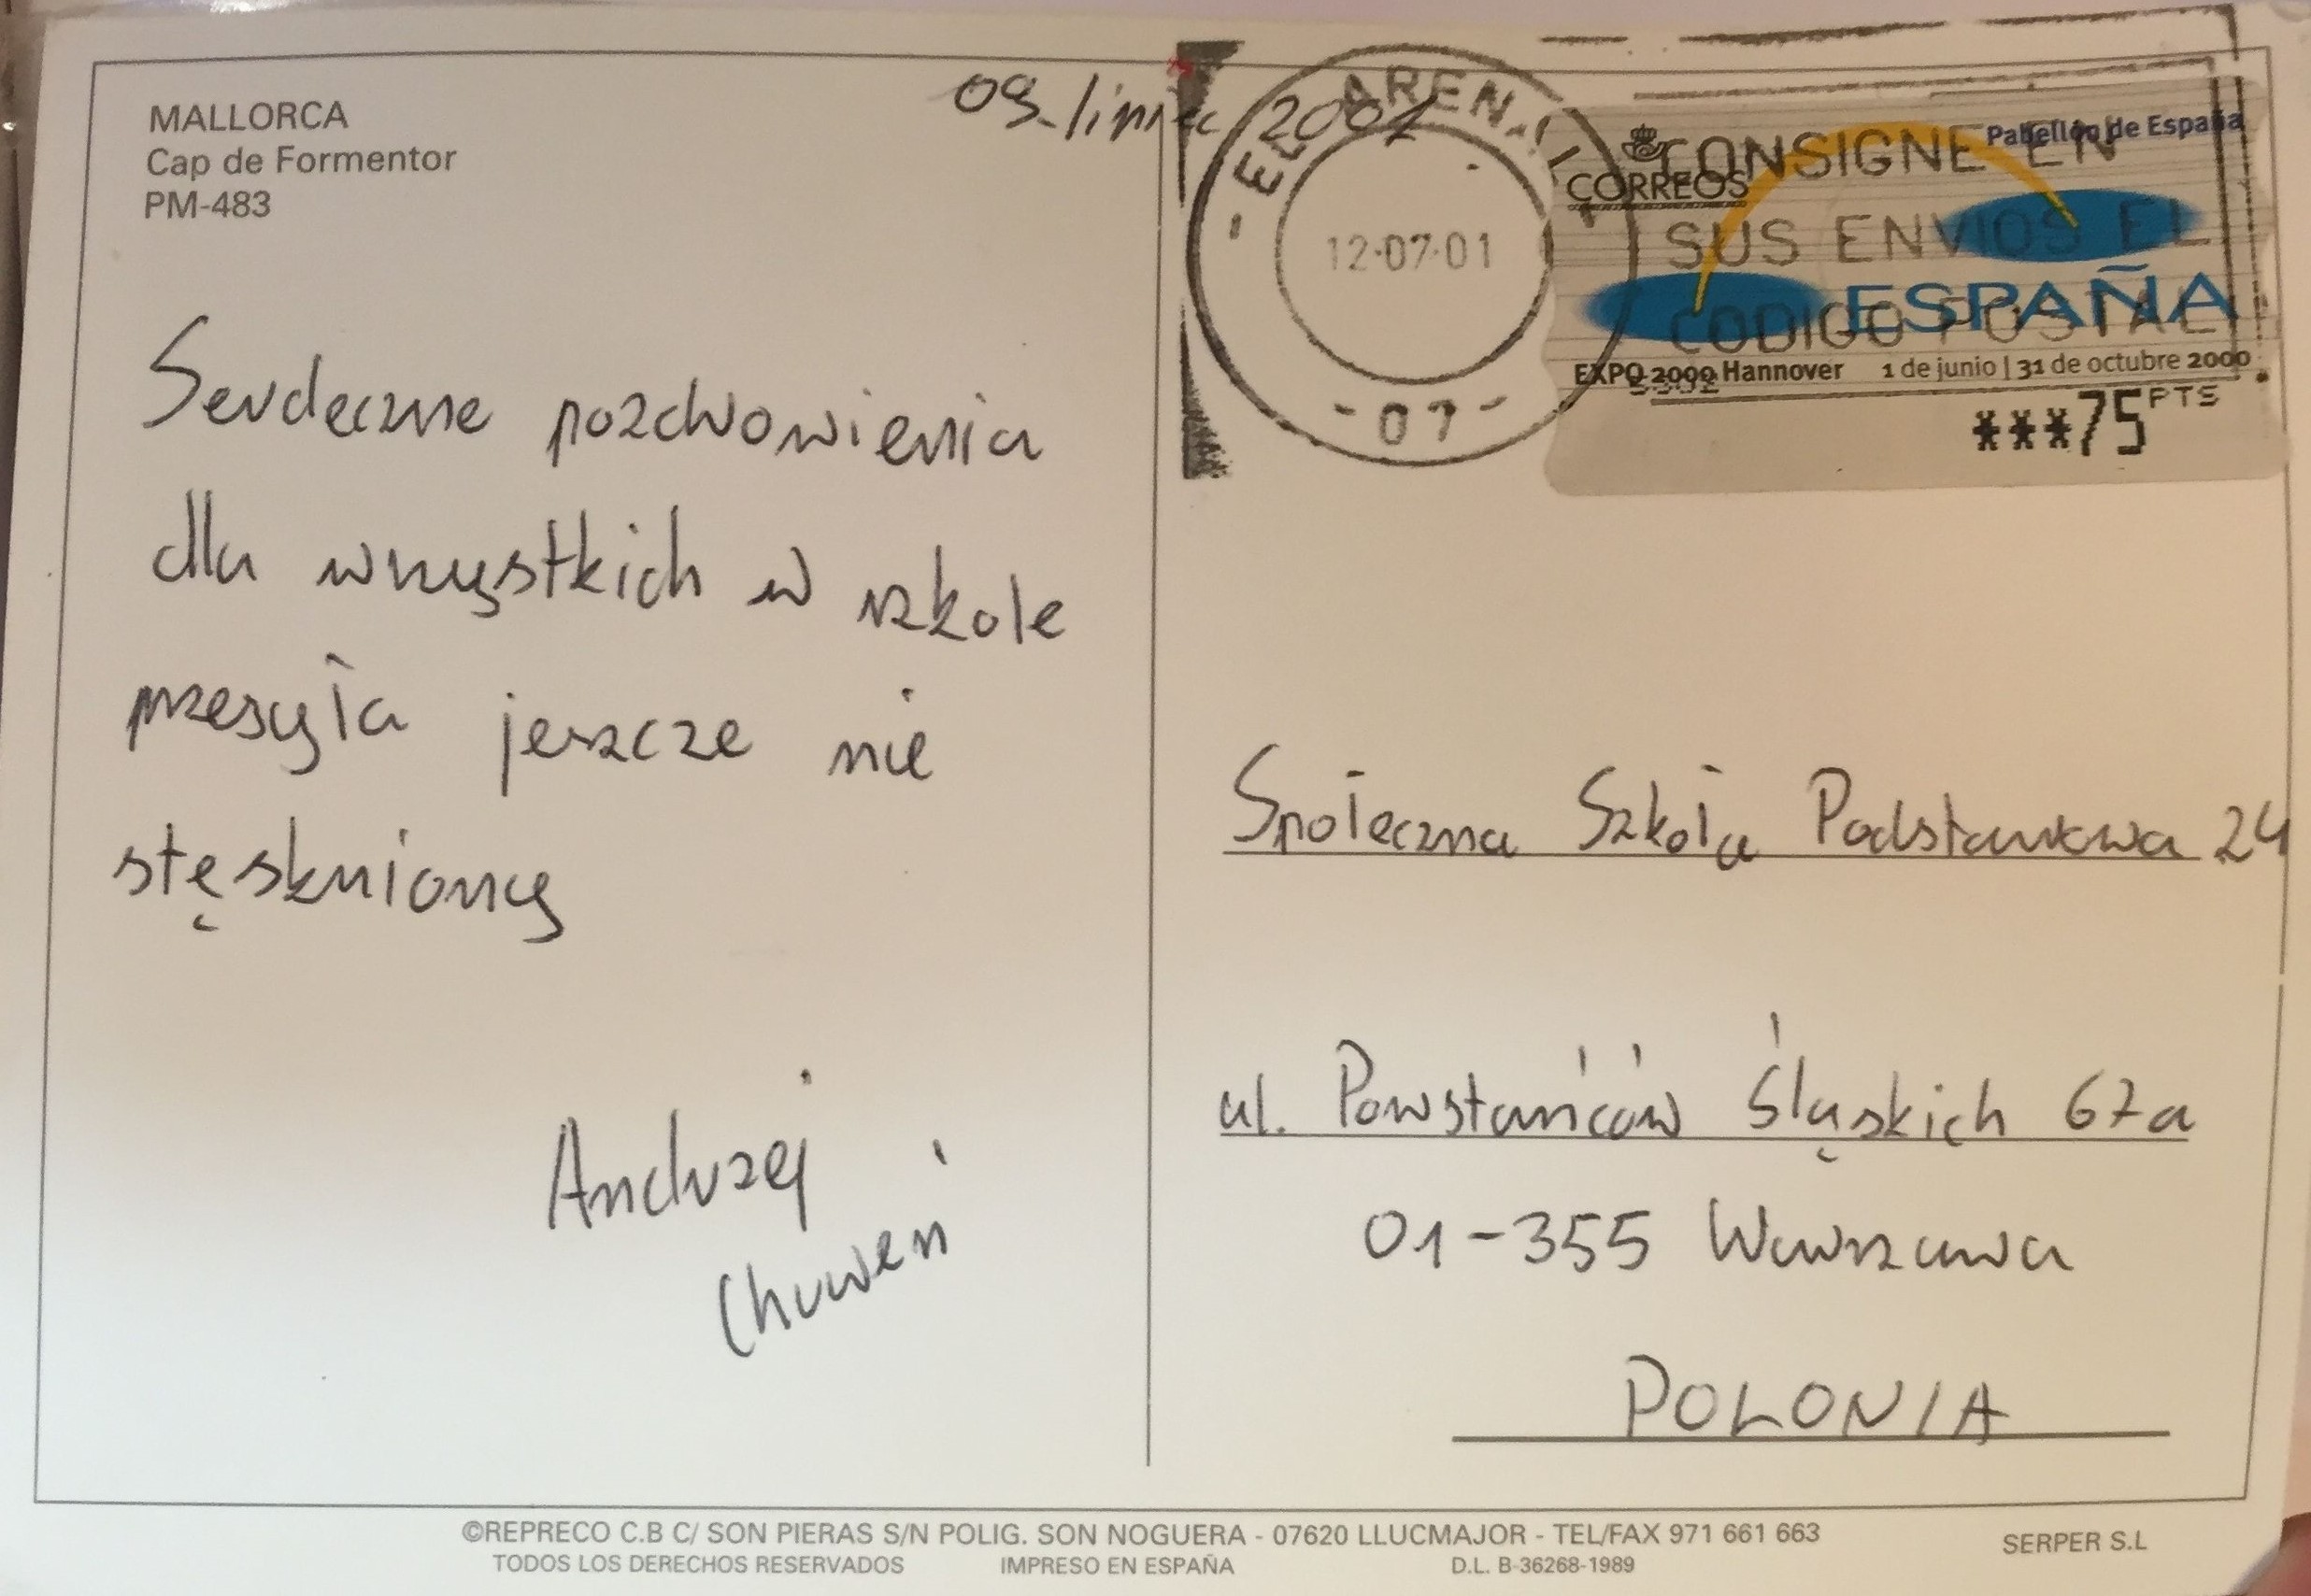 MALLORCA
Cap de Formentor
PM-483
09 lipiec 2001
Serdeczne pozdrowienia
dla wszystkich w szkole
przesyła jeszcze nie
stęskniony
Andrzej
Chuweń
- EL ARENAL -
12·07·01
- 07 -
CONSIGNE EN
SUS ENVIOS EL
CODIGO POSTAL
CORREOS
Pabellón de España
ESPAÑA
EXPO 2000 Hannover 1 de junio | 31 de octubre 2000
***75 PTS
Społeczna Szkoła Podstawowa 24
ul. Powstańców Śląskich 67a
01-355 Warszawa
POLONIA
©REPRECO C.B C/ SON PIERAS S/N POLIG. SON NOGUERA - 07620 LLUCMAJOR - TEL/FAX 971 661 663
TODOS LOS DERECHOS RESERVADOS IMPRESO EN ESPAÑA D.L. B-36268-1989
SERPER S.L